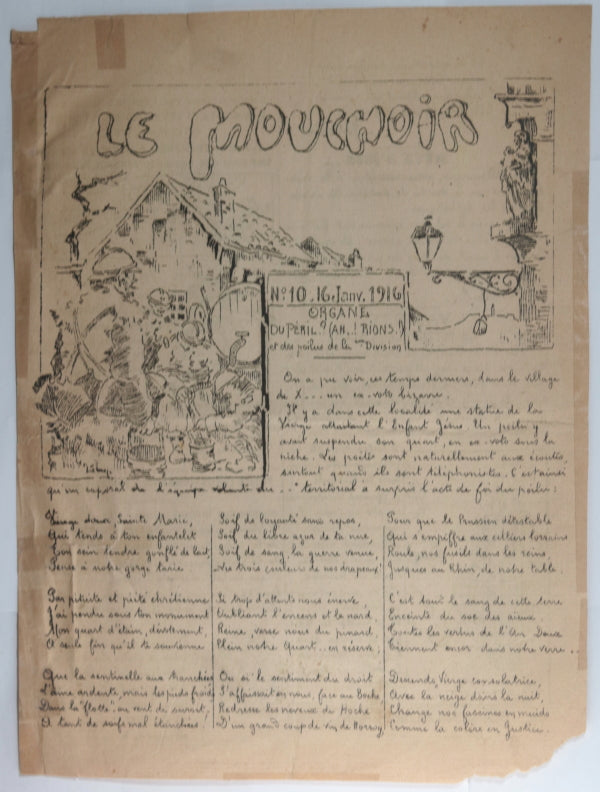 LE MOUCHOIR
N° 10. 16 Janv. 1916
ORGANE
DU PÉRIL? (AH..! RIONS!)
et des poilus de la Division
On a pu voir, ces temps derniers, dans le village
de X... un ex-voto bizarre.
Il y a dans cette localité une statue de la
Vierge allaitant l'Enfant Jésus. Un poilu y
avait suspendu son quart, en ex-voto sous la
niche. Les poètes sont naturellement aux écoutes,
surtout quand ils sont téléphonistes. C'est ainsi
qu'un caporal de l'équipe volante du ..e territorial a surpris l'acte de foi du poilu:
Vierge douce, Sainte Marie,
Qui tends à ton enfantelet
Ton sein tendre gonflé de lait,
Pense à notre gorge tarie.
Par pitié et piété chrétienne
J'ai pendu sous ton monument
Mon quart d'étain, dévotement,
A seule fin qu'il te souvienne
Que la sentinelle aux tranchées
L'âme ardente, mais les pieds froids
Dans la "flotte", au vent de suroit,
A tant de soifs mal étanchées!
Soif de loyauté sans repos,
Soif du libre azur de ta nue,
Soif de sang, la guerre venue,
Les trois couleurs de nos drapeaux!
Si trop d'attente nous énerve,
Oubliant l'encens et le nard,
Reine, verse nous du pinard,
Plein notre Quart.. en réserve,
Ou si le sentiment du droit
S'affaissait en nous, face au Boche
Redresse les neveux de Hoche
D'un grand coup de vin de
Pour que le Prussien détestable
Qui s'empiffre aux celliers lorrains
Roule, nos fusils dans les reins,
Jusques au Rhin, de notre table.
C'est tout le sang de cette terre
Enceinte du soc des aïeux.
Toutes les vertus de l'An Doux
Tiennent encor dans notre verre..
Descends, Vierge consolatrice,
Avec la neige dans la nuit,
Change nos fascines en muids
Comme la colère en Justice.